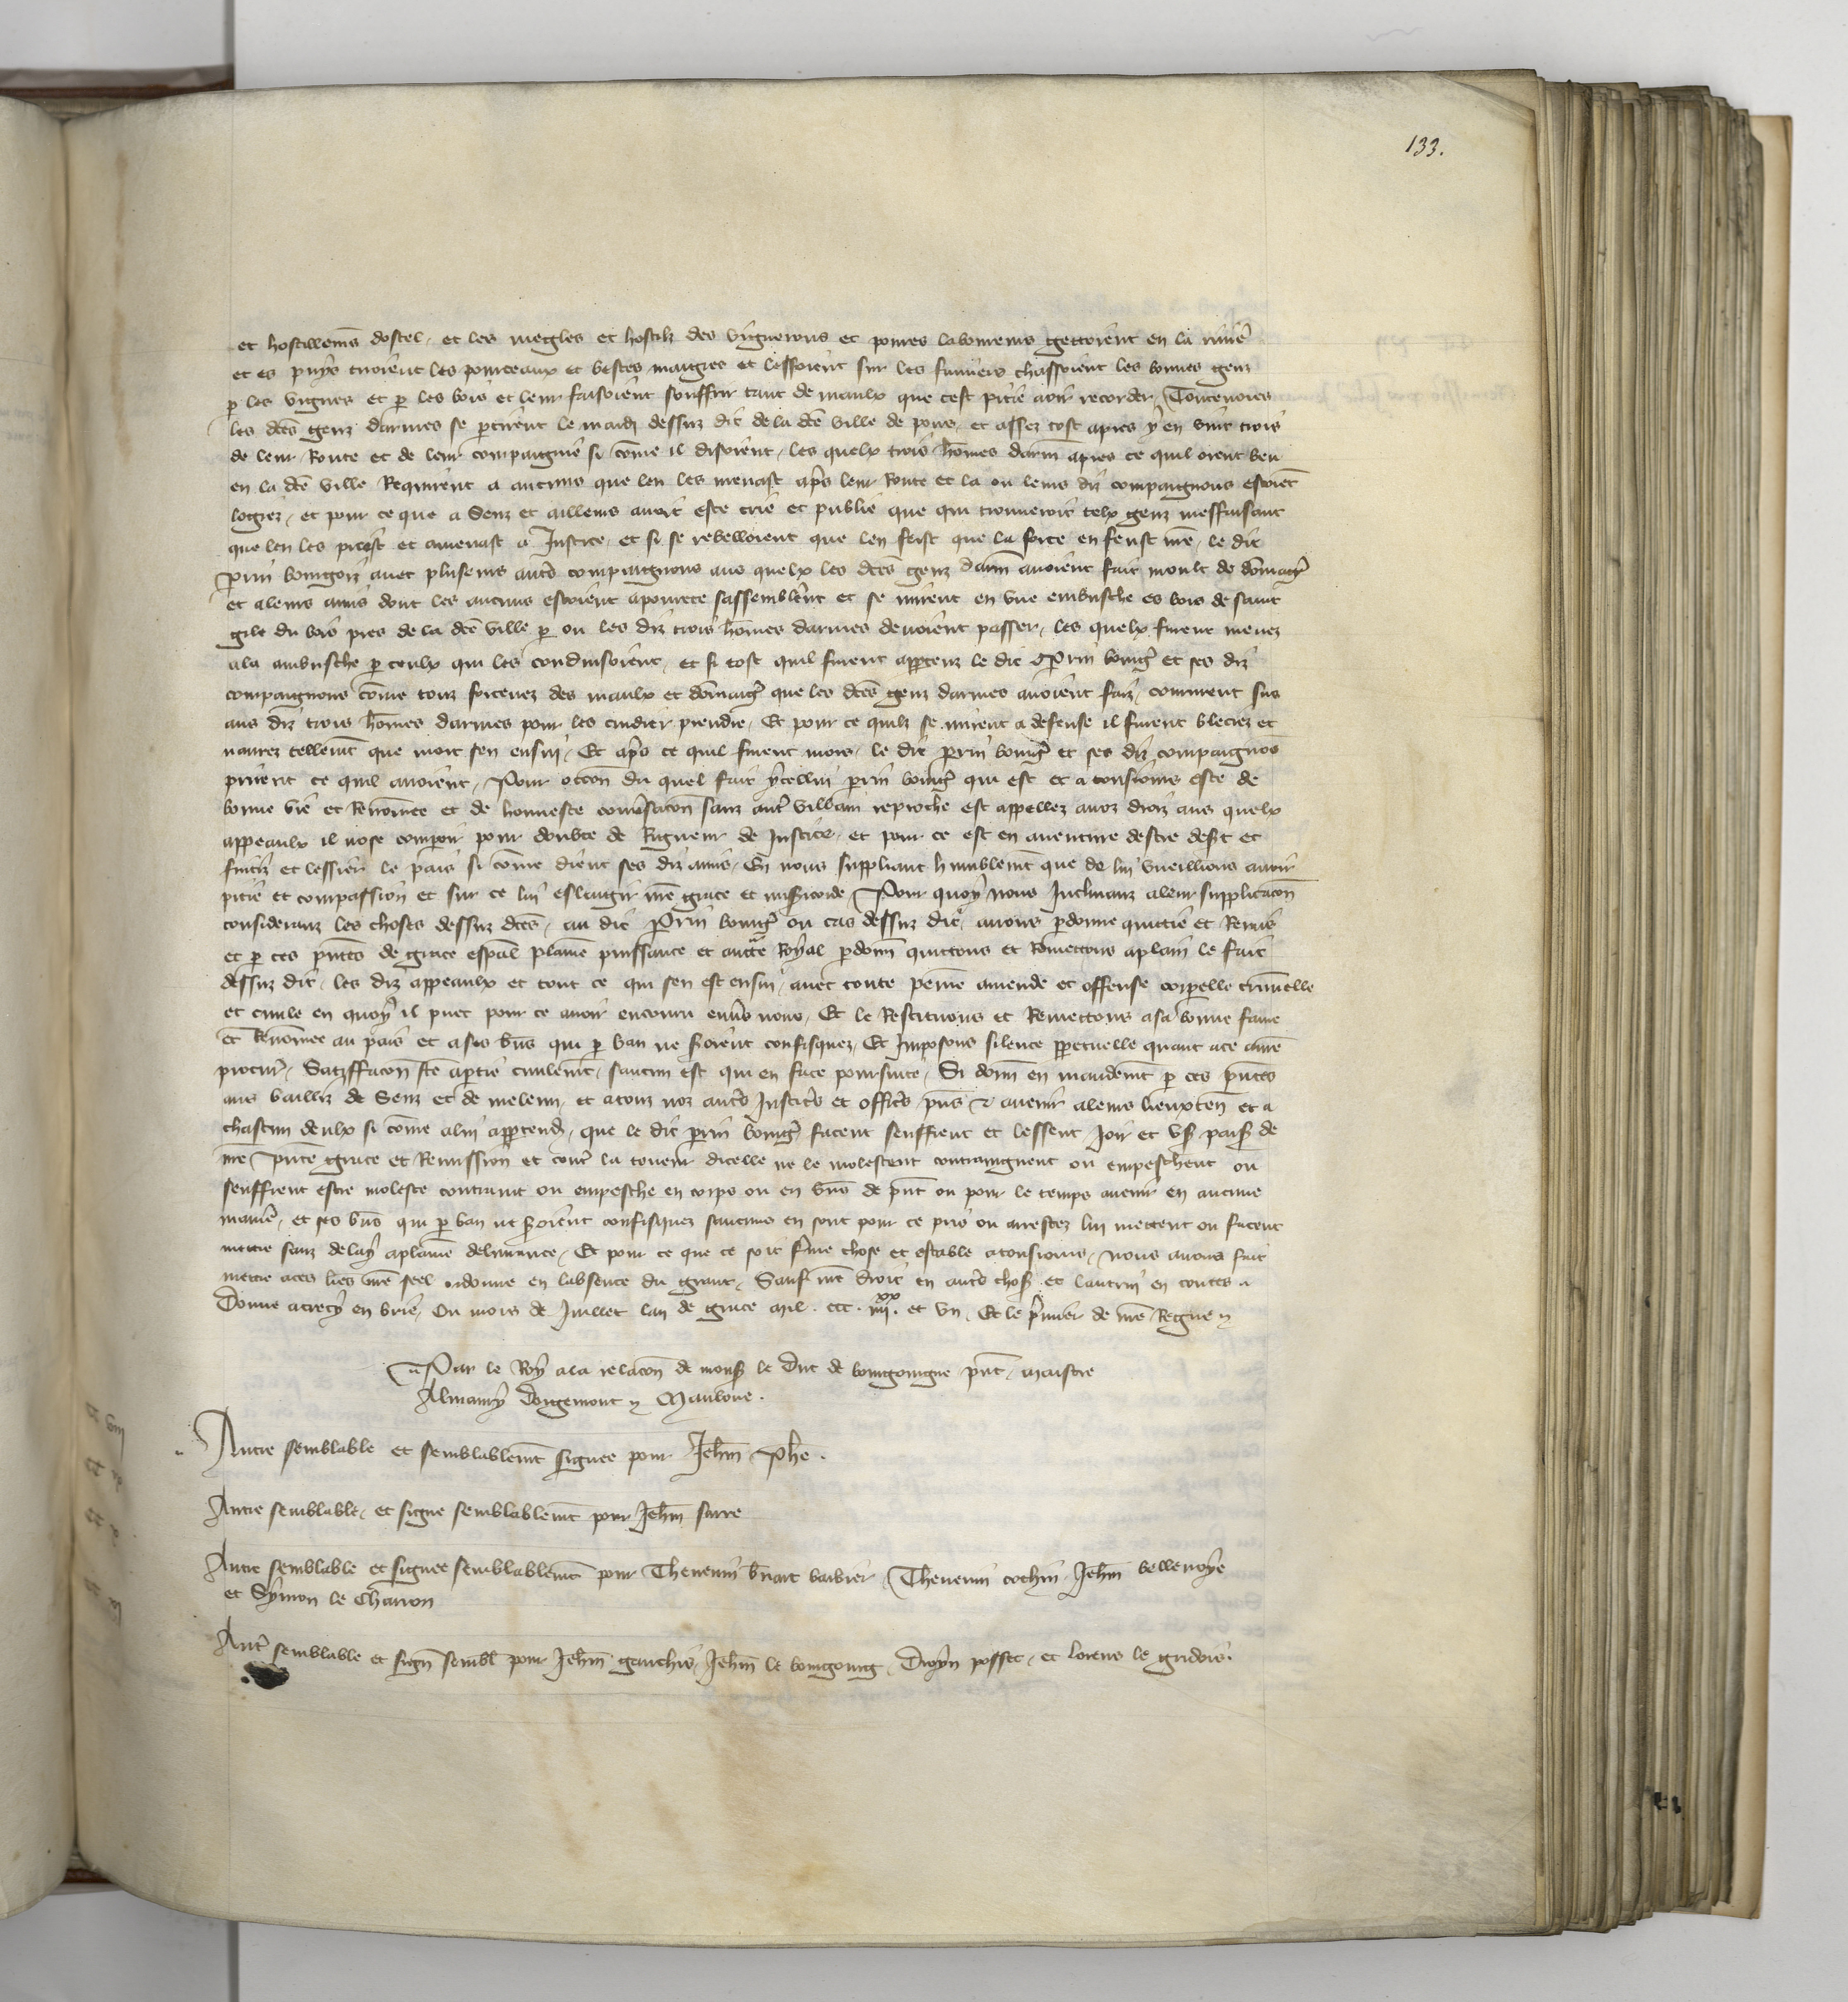 133.
et hostillemēs dostel, et les megles et hostilz des vignerons et poures laboureurs gettoient en la riuiē
et es puys tuoient les pourceaux et bestes maigres et lessoient sur les fumiers chassoient les bonnes genz
p les vignes et p les bois et leur faisoient souffrir tant de maulx que cest pitie a oir recorder, Toutenoies
les dēs genz darmes se ptirent le mardi dessuz dit de la dē ville de pons, et assez tost apres y en vint trois
de leur Route et de leur compaignie si cōme il disoient, les quelx trois hōmes darm̄ apres ce quil orent beu
en la dē ville Requirent a aucuns que len les menast apřs leur Route et la ou leurs diz compaignons estoiēt
logiez, et pour ce que a Senz et ailleurs auoit este crie et publie que qui trouueroit telx genz meffaisant
que len les preist et amenast a Justice, et si se rebelloient que len feist que la force en feust n̄re, le dit
Perrin bourgoiz auec pluseurs autřs compaignons aus quelx les dēs genz darm̄ auoient fait moult de dōmaigē
et a leurs amis dont les aucuns estoient a pourete sassemblērent et se mirent en vne embusche es bois de saint
gile du bois pres de la dē ville p ou les diz trois hōmes darmes deuoient passer, les quelx furent menez
a la embusche p ceulx qui les conduisoient, et si tost quil furent appceuz le dit Perrin bourḡ et ses diz
compaignons cōme touz forcenez des maulx et dōmaiḡ que les dēs genz darmes auoient faiz, coururent sus
aus diz trois hōmes darmes pour les cuidier prendre, Et pour ce quilz se mirent a defense il furent bleciez et
naurez tellemēt que mort sen ensui, Et apřs ce quil furent mors, le dit perrin bourḡ et ses diz compaignōs
prirent ce quil auoient, Pour occōn du quel fait ycellui perrin bourḡ qui est et a tousiours este de
bonne vie et Renōmee et de honneste conūsacōn sanz autř villain reproche est appellez a noz droiz aus quelx
appeaulx il nose comparoir pour doubte de Rigueur de Justice, et pour ce est en auenture destre desēt et
fuitiz et lessier le pais si cōme dient ses diz amis, En nous suppliant humblemēt que de lui vueillions auoir
pitie et compassion et sur ce lui eslargir n̄re grace et misēicorde, Pour quoy nous Inclinanz a leur supplicacōn
consideranz les choses dessuz dēs, au dit Perrin bourḡ ou cas dessuz dit, auons pdonne quittie et Remis
et p ces pn̄tes de grace esp̄al plaine puissance et auctē Royal pdonn̄ quittons et Remettons a plain le fait
dessuz dit, les diz appeaulx et tout ce qui sen est ensui, auec toute peine amende et offense corporelle criminelle
et ciuile en quoy il puet pour ce auoir encouru enuēs nous, Et le Restituons et Remettons a sa bonne fame
et Renōmee au pais et a ses bn̄s qui p ban ne seroient confisquez, Et Imposons silence ppetuelle quant a ce a n̄re
procur̄, Satiffacōn fc̄e a ptie ciuilemēt, saucun est qui en face poursuite, Si donn̄ en mandemēt p ces pn̄tes
aus bailliz de Senz et de meleun, et a touz noz autřs Justiciers et officiers pn̄s & auenir a leurs lieuxten̄ et a
chascun deulx si cōme a lui appartendra, que le dit perrin bourḡ facent seuffrent et lessent Joir et vsēr paisēble de
n̄re pn̄te grace et Remission et contř la teneur dicelle ne le molestent contraingnent ou empeschent ou
seuffrent estre moleste contraint ou empesche en corps ou en bn̄s de pn̄t ou pour le temps auenir en aucune
maniē, et ses bn̄s qui p ban ne seroient confisquez saucuns en sont pour ce pris ou arrestez lui mettent ou facent
mettre sanz delay a plaine deliurance, Et pour ce que ce soit ferme chose et estable a tousiours, nous auons fait
mettre a ces lr̄es n̄re seel ordonne en labsence du grant, Sauf n̄re droit en autřs chosēs et lautrui en toutes //
Donne a crecy en brie, Ou mois de Juillet lan de grace mil . ccc . iiii xx . et vn, Et le premier de n̄re Regne //
Par le Roy a la relacōn de monsēr le Duc de bourgoingne pn̄t, maistre
Almaury dorgemont // Maulone .
Autre semblable et semblablemēt signee pour Jeh̄n Ph̄e .
Autre semblable, et signe semblablemēt pour Jeh̄n sarre
Autre semblable et signee semblablemēt pour Thenenin b̄nart barbier, Thenenin cochin, Jeh̄n bellenoye
et Symon le Charron
Autř semblable et sign̄ sembl̄ pour Jeh̄n gauchis, Jeh̄n le bourgoing, Droyn posset, et lorens le gridois.